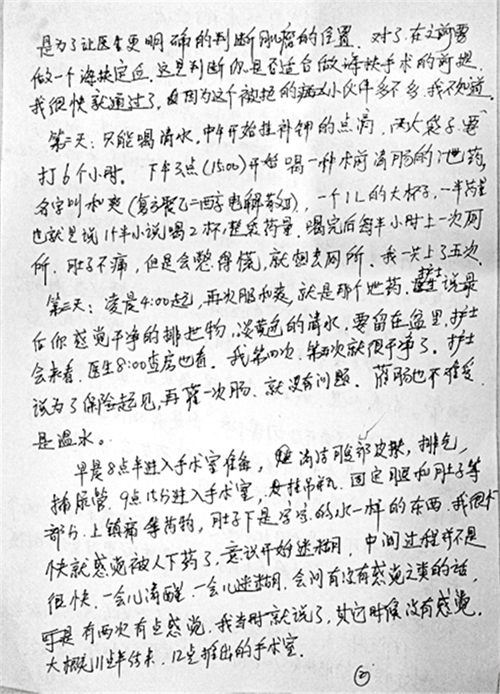 是为了让医生更明确的判断肌瘤的位置. 对了.在之前要
做一个海扶定位.这是判断你是否适合做海扶手术的前提.
我很快就通过了,因为这个被拒的病友小伙伴多不多.我不知道.
第二天:只能喝清水,中午开始挂补钾的点滴,两大袋子.要
打6个小时. 下午3点(15:00)开始喝一种术前清肠的泄药,
名字叫和爽(复方聚乙二醇电解散Ⅱ),一个1L的大杯子,一半药量
也就是说1个半小说喝2杯整药量.喝完后每半小时上一次厕
所.肚子不痛,但是会憋得慌,就想去厕所.我一共上了五次.
第三天:凌晨4:00起,再次服和爽,就是那个泄药.护士说最
后你感觉干净的排泄物,淡黄色的清水,要留在盆里.护士
会来看.医生8:00查房也看. 我第四次.第五次就很干净了.护士
说为了保险起见,再灌一次肠.就没有问题. 灌肠也不难受.
是温水。
早晨8点半进入手术室准备, 清洁腹部皮肤,排气,
插尿管. 9点15分进入手术室, 固定腿和肚子等
部分.上镇痛等药物,肚子下是的水一样的东西.我很
快就感觉被人下药了,意识开始迷糊. 中间过程并不是
很快.一会儿清醒.一会儿迷糊.会问有没有感觉之类的话.
于是有两次有点感觉.我当时就说了,其它时候没有感觉.
大概11点半结束.12点推出的手术室.
②